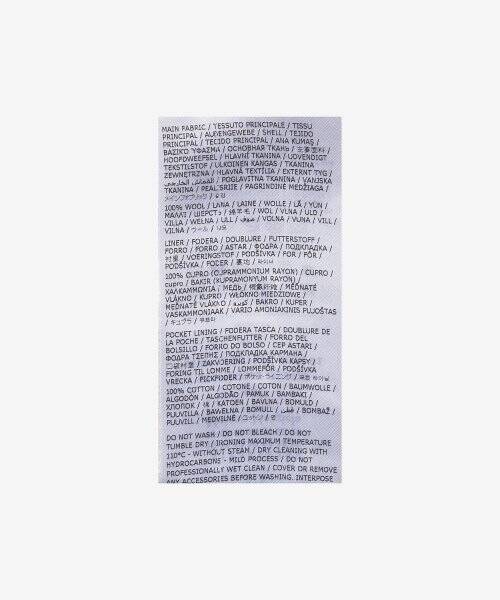 MAIN FABRIC / TESSUTO PRINCIPALE / TISSU
PRINCIPAL / AUßENGEWEBE / SHELL / TEJIDO
PRINCIPAL / TECIDO PRINCIPAL / ANA KUMAŞ /
ΒΑΣΙΚΟ ΥΦΑΣΜΑ / ОСНОВНАЯ ТКАНЬ / 主要面料 /
HOOFDWEEFSEL / HLAVNÍ TKANINA / UDVENDIGT
TEKSTILSTOF / ULKOINEN KANGAS / TKANINA
ZEWNĘTRZNA / HLAVNÁ TEXTÍLIA / EXTERNT TYG /
القماش الخارجي / POGLAVITNA TKANINA / VANJSKA
TKANINA / PEALISRIIE / PAGRINDINĖ MEDŽIAGA /
100% WOOL / LANA / LAINE / WOLLE / LÃ / YÜN /
ΜΑΛΛΙ / ШЕРСТЬ / 绵羊毛 / WOL / VLNA / ULD /
VILLA / WEŁNA / ULL / صوف / VOLNA / VUNA / VILL /
VILNA / ウール / 모
LINER / FODERA / DOUBLURE / FUTTERSTOFF /
FORRO / FORRO / ASTAR / ΦΟΔΡΑ / ПОДКЛАДКА /
衬里 / VOERINGSTOF / PODŠÍVKA / FOR / FÓR /
PODŠÍVKA / FODER / 裏地 /
100% CUPRO (CUPRAMMONIUM RAYON) / CUPRO /
cupro / BAKIR (KUPRAMONYUM RAYON) /
ΧΑΛΚΑΜΜΩΝΙΑ / МЕДЬ / 铜氨纤维 / MĚDNATÉ
VLÁKNO / KUPRO / WŁÓKNO MIEDZIOWE /
MEDNATÉ VLÁKNO / كوبرو / BAKRO / KUPER /
VASKAMMONIAAK / VARIO AMONIAKINIS PLUOŠTAS
/ キュプラ / 큐프라
POCKET LINING / FODERA TASCA / DOUBLURE DE
LA POCHE / TASCHENFUTTER / FORRO DEL
BOLSILLO / FORRO DO BOLSO / CEP ASTARI /
ΦΟΔΡΑ ΤΣΕΠΗΣ / ПОДКЛАДКА КАРМАНА /
口袋衬里 / ZAKVOERING / PODŠÍVKA KAPSY /
FORING TIL LOMME / LOMMEFÓR / PODŠÍVKA
VRECKA / FICKFODER / ポケットライニング /
100% COTTON / COTONE / COTON / BAUMWOLLE /
ALGODÓN / ALGODÃO / PAMUK / ΒΑΜΒΑΚΙ /
ХЛОПОК / 棉 / KATOEN / BAVLNA / BOMULD /
PUUVILLA / BAWEŁNA / BOMULL / قطن / BOMBAŽ /
PUUVILL / MEDVILNĖ / コットン / 면
DO NOT WASH / DO NOT BLEACH / DO NOT
TUMBLE DRY / IRONING MAXIMUM TEMPERATURE
110°C - WITHOUT STEAM / DRY CLEANING WITH
HYDROCARBONS - MILD PROCESS / DO NOT
PROFESSIONALLY WET CLEAN / COVER OR REMOVE
ANY ACCESSORIES BEFORE WASHING. INTERPOSE